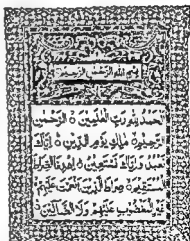 بسم الله الرحمن الرحيم
الحمد لله رب العلمين ۝ الرحمن
الرحيم ۝ ملك يوم الدين ۝ اياك
نعبد واياك نستعين ۝ اهدنا الصراط
المستقيم ۝ صراط الذين انعمت عليهم ۝
غير المغضوب عليهم ولا الضالين